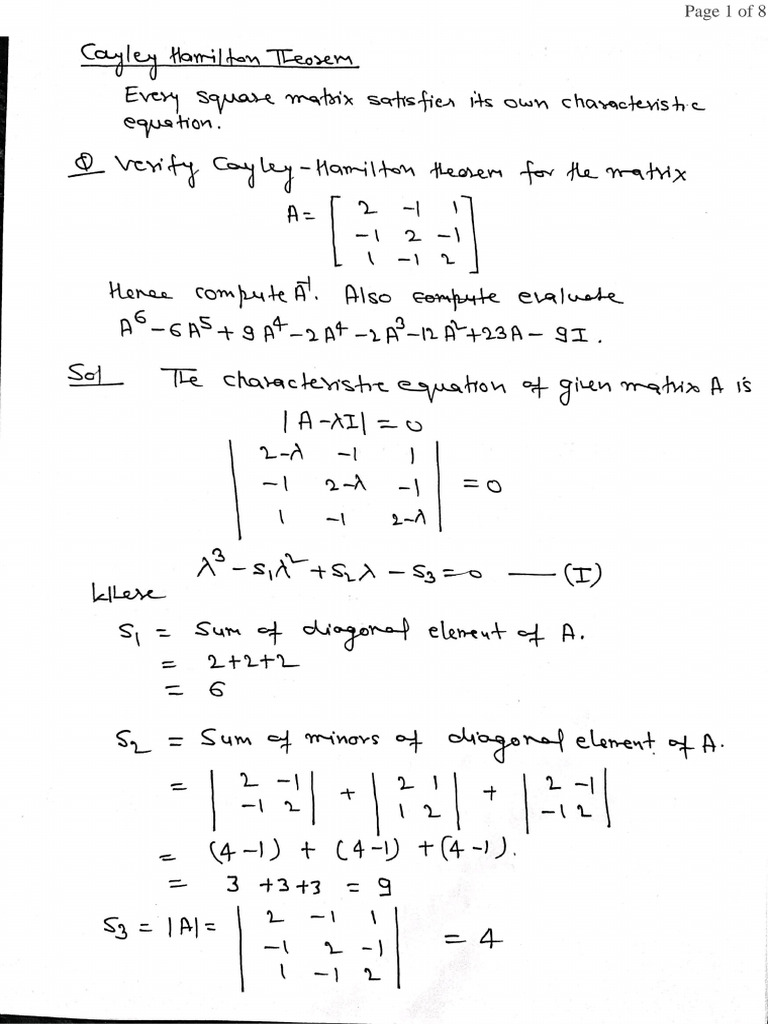 Page 1 of 8
Cayley Hamilton Theorem
Every square matrix satisfies its own characteristic
equation.
Q Verify Cayley-Hamilton theorem for the matrix
A = [ 2 -1 1
-1 2 -1
1 -1 2 ]
Hence compute A⁻¹. Also compute evaluate
A⁶-6A⁵+9A⁴-2A⁴-2A³-12A²+23A-9I.
Sol The characteristic equation of given matrix A is
|A-λI| = 0
| 2-λ -1 1 |
| -1 2-λ -1 | = 0
| 1 -1 2-λ |
λ³-S₁λ²+S₂λ-S₃=0 — (I)
Where
S₁ = Sum of diagonal element of A.
= 2+2+2
= 6
S₂ = Sum of minors of diagonal element of A.
= | 2 -1 | + | 2 1 | + | 2 -1 |
| -1 2 | | 1 2 | | -1 2 |
= (4-1) + (4-1) + (4-1).
= 3 +3+3 = 9
S₃ = |A| = | 2 -1 1 |
| -1 2 -1 | = 4
| 1 -1 2 |